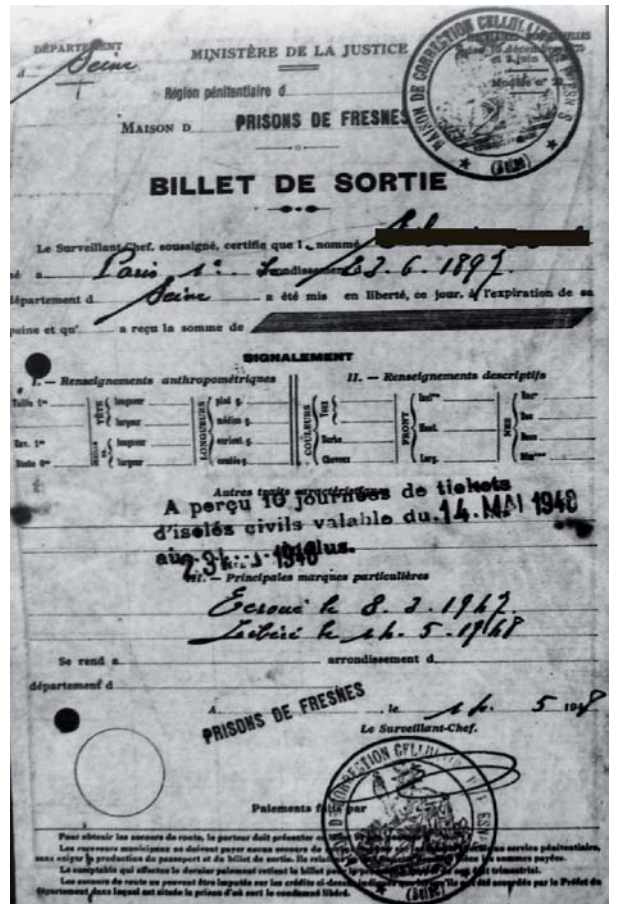 DÉPARTEMENT
d Seine
MINISTÈRE DE LA JUSTICE
Région pénitentiaire d
MAISON D PRISONS DE FRESNES
MAISON DE CORRECTION CELLULAIRE
BILLET DE SORTIE
Le Surveillant-Chef, soussigné, certifie que l nommé
né a Paris 1e 23.6.1897
département d Seine a été mis en liberté, ce jour, à l'expiration de sa
peine et qu' a reçu la somme de
SIGNALEMENT
I. — Renseignements anthropométriques
II. — Renseignements descriptifs
Taille 1m
TÊTE
longueur
largeur
longueur
largeur
LONGUEURS
pied g.
médius g.
auricul. g.
coudée g.
COULEURS
Barbe
Cheveux
FRONT
Haut.
Larg.
NEZ
Autres traits caractéristiques
A perçu 10 journées de tickets
d'isolés civils valable du 14. MAI 1948
au 23 1948 inclus.
III. — Principales marques particulières
Ecroué le 8.3.1947
Libéré le 14.5.1948
Se rend a arrondissement d
département d
A PRISONS DE FRESNES, le 14. 5 1948
Le Surveillant-Chef.
Paiements faits par
Pour obtenir les secours de route, le porteur doit présenter
Les receveurs municipaux ne doivent payer aucun secours de service pénitentiaire,
sans exiger la production du passeport et du billet de sortie. Ils sommes payées.
Le comptable qui effectue le dernier paiement retient le billet trimestriel.
Les secours de route ne peuvent être imputés sur les crédits accordés par le Préfet du
département dans lequel est située la prison d'où sort le condamné libéré.